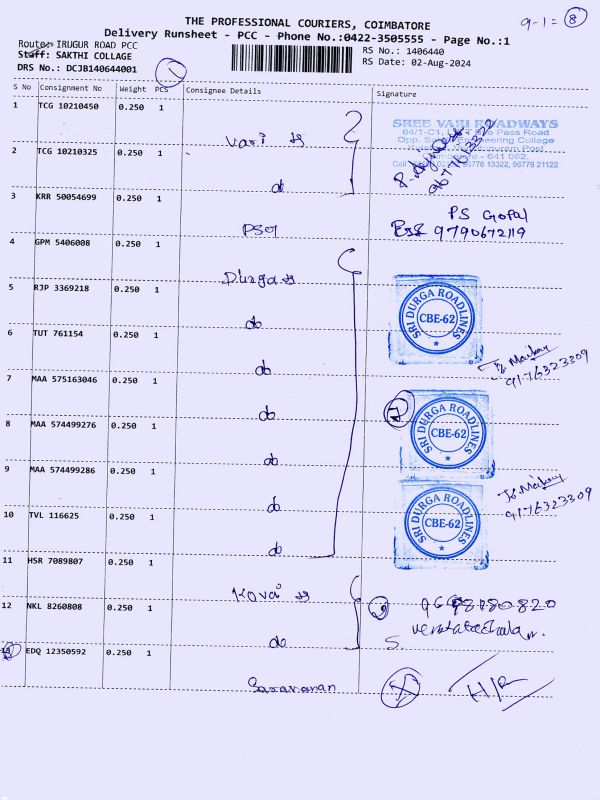 THE PROFESSIONAL COURIERS, COIMBATORE
9-1=8
Delivery Runsheet - PCC - Phone No.:0422-3505555 - Page No.:1
Route: IRUGUR ROAD PCC
RS No.: 1406440
Staff: SAKTHI COLLAGE
RS Date: 02-Aug-2024
DRS No.: DCJB140644001
1
S No Consignment No Weight PCS Consignee Details Signature
1 TCG 10210450 0.250 1
SREE VARI ROADWAYS
Vari
2 TCG 10210325 0.250 1
do
9677613322
3 KRR 50054699 0.250 1
PS Gopal
9790672119
4 GPM 5406008 0.250 1
Durga
5 RJP 3369218 0.250 1
do
SRI DURGA ROADLINES
CBE-62
6 TUT 761154 0.250 1
do
9176323309
7 MAA 575163046 0.250 1
do
8 MAA 574499276 0.250 1
do
SRI DURGA ROADLINES
CBE-62
9 MAA 574499286 0.250 1
do
9176323309
10 TVL 116625 0.250 1
do
SRI DURGA ROADLINES
CBE-62
11 HSR 7089807 0.250 1
Kovai
12 NKL 8260808 0.250 1
do
13 EDQ 12350592 0.250 1
Saravanan